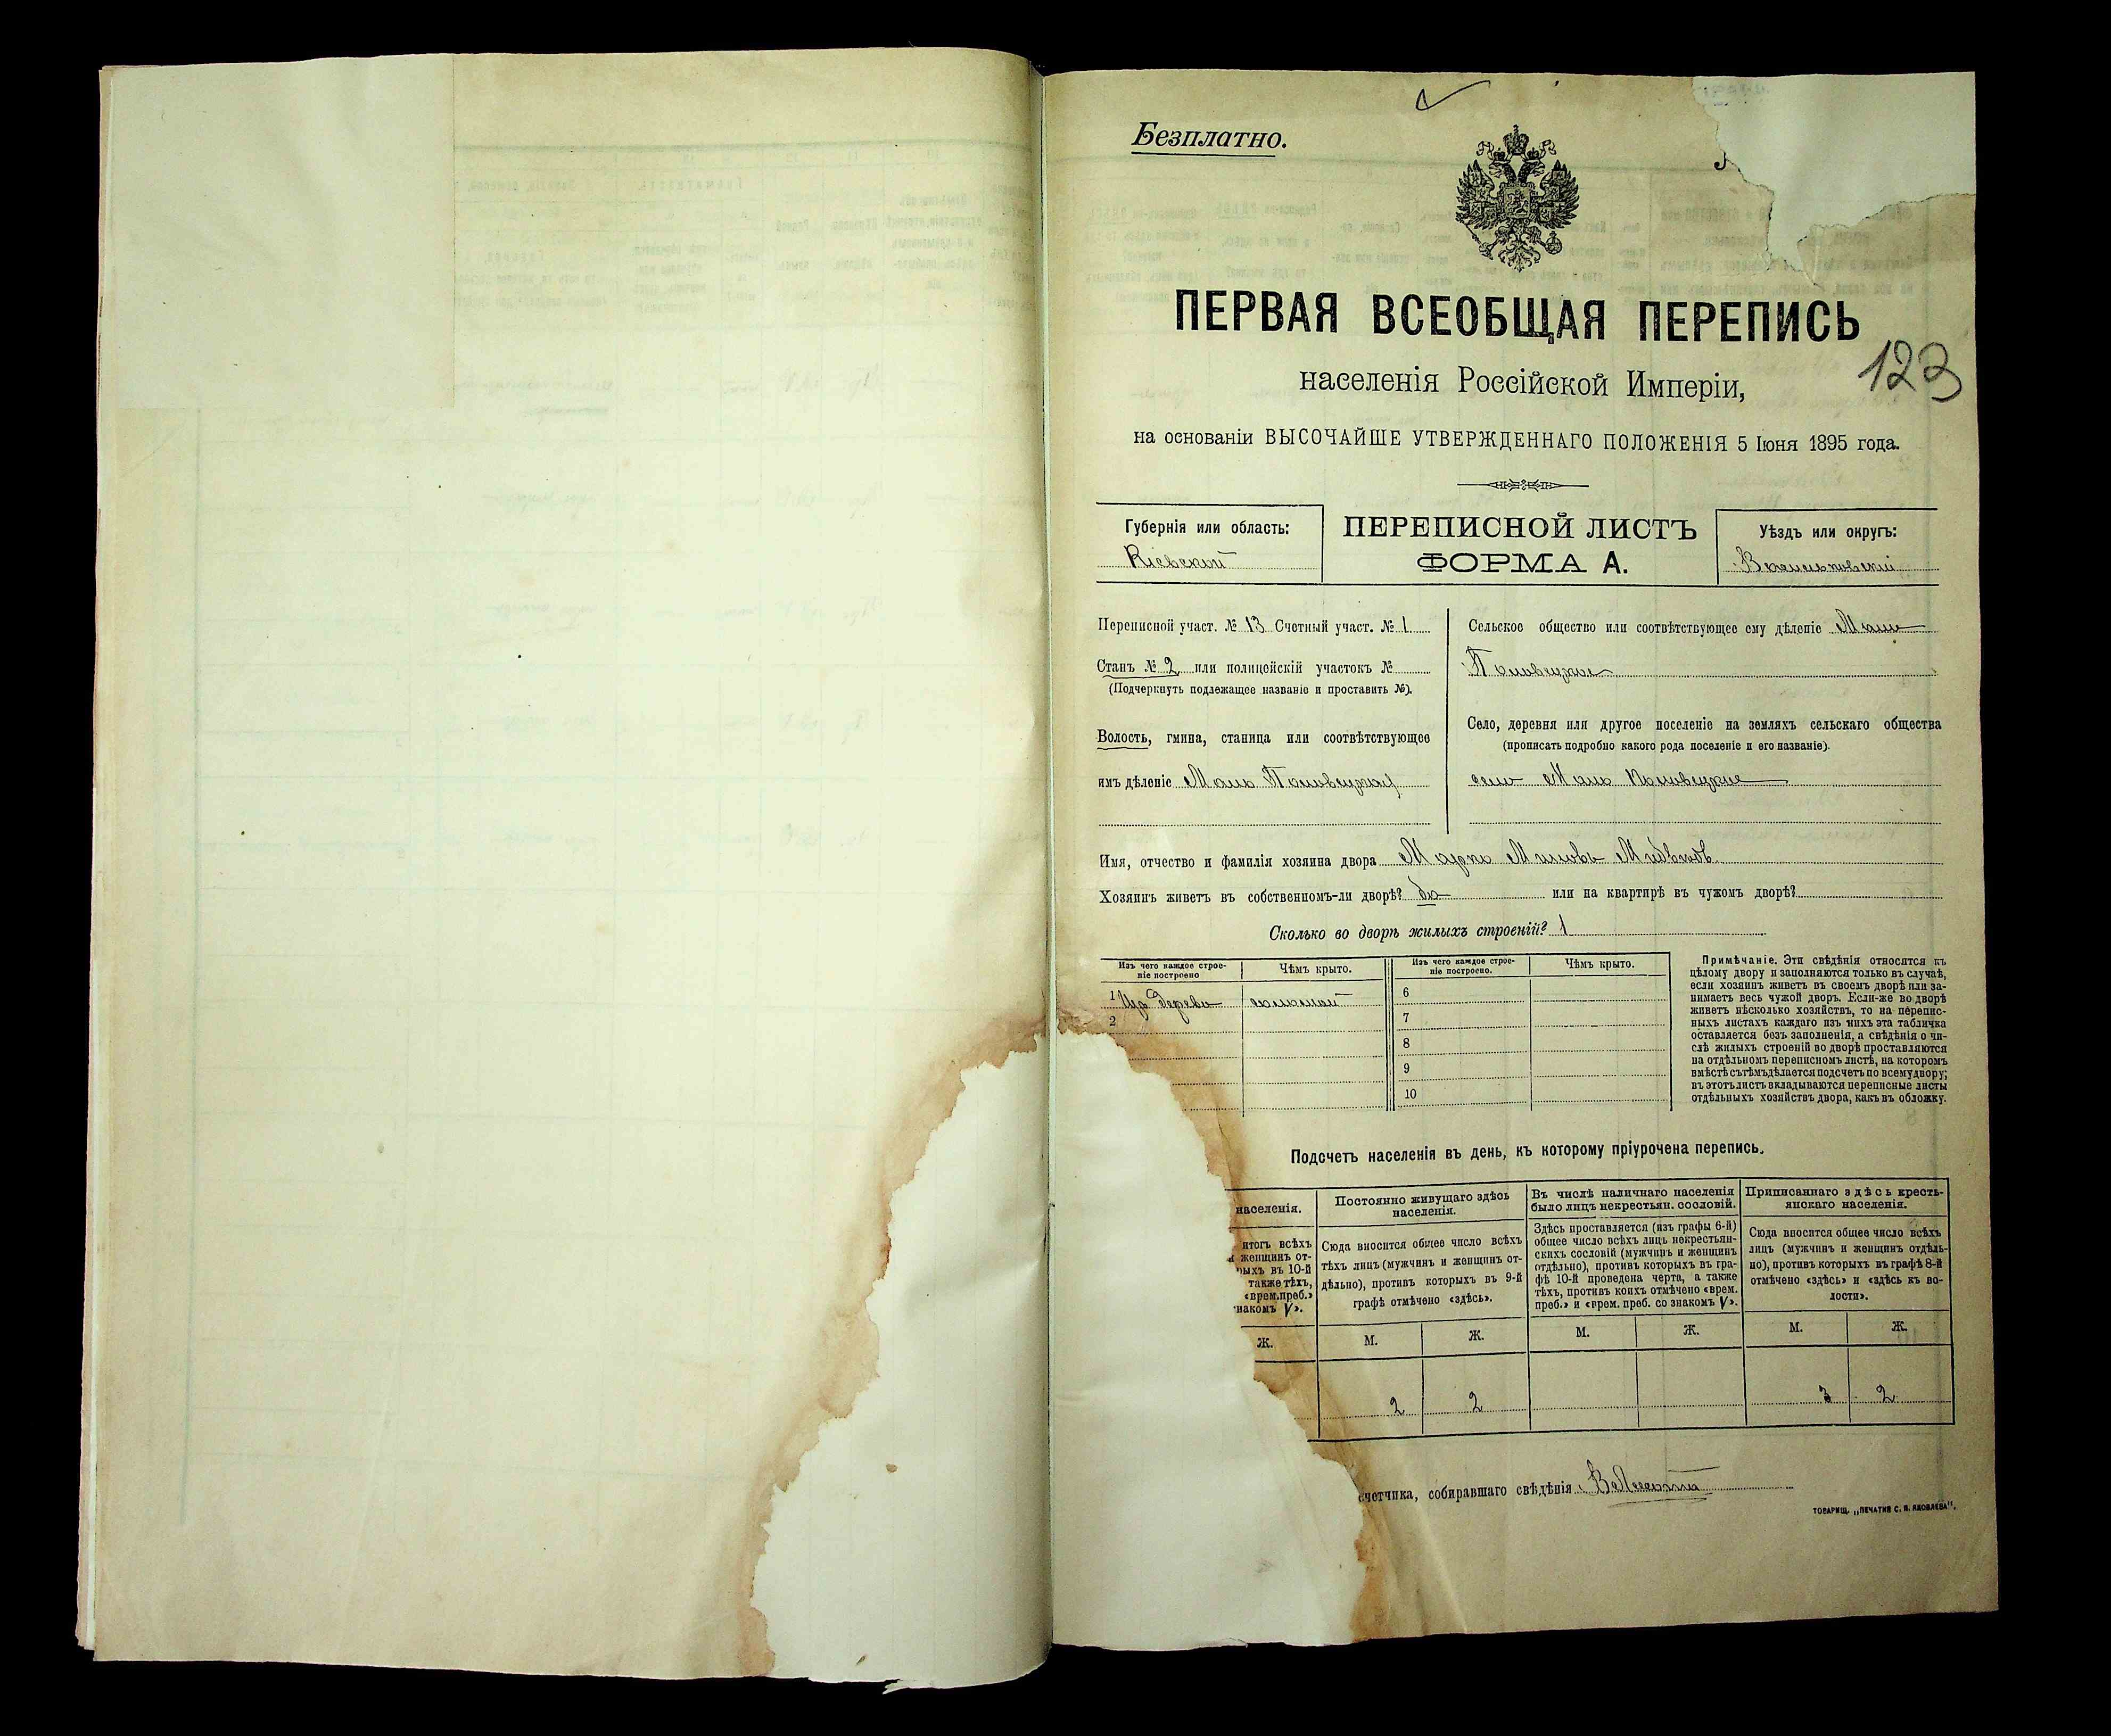 Безплатно.
ПЕРВАЯ ВСЕОБЩАЯ ПЕРЕПИСЬ
123
населенія Россійской Имперіи,
на основаніи ВЫСОЧАЙШЕ УТВЕРЖДЕННАГО ПОЛОЖЕНІЯ 5 Іюня 1895 года.
Губернія или область:
Кіевской
ПЕРЕПИСНОЙ ЛИСТЪ
ФОРМА А.
Уѣздъ или округъ:
Васильковскій
Переписной участ. № 13 Счетный участ. № 1
Станъ № 2 или полицейскій участокъ №
(Подчеркнуть подлежащее названіе и проставить №).
Волость, гмина, станица или соотвѣтствующее
имъ дѣленіе Мало Половецкая
Сельское общество или соотвѣтствующее ему дѣленіе Мало
Половецкое
Село, деревня или другое поселеніе на земляхъ сельскаго общества
(прописать подробно какого рода поселеніе и его названіе).
село Мало Половецкое
Имя, отчество и фамилія хозяина двора Марко
Хозяинъ живетъ въ собственномъ-ли дворѣ? да или на квартирѣ въ чужомъ дворѣ?
Сколько во дворѣ жилыхъ строеній? 1
Изъ чего каждое строе-
ніе построено
Чѣмъ крыто.
Изъ чего каждое строе-
ніе построено.
Чѣмъ крыто.
1 Изъ дерева соломой
2
6
7
8
9
10
Примѣчаніе. Эти свѣдѣнія относятся къ
цѣлому двору и заполняются только въ случаѣ,
если хозяинъ живетъ въ своемъ дворѣ или за-
нимаетъ весь чужой дворъ. Если-же во дворѣ
живетъ нѣсколько хозяйствъ, то на перепис-
ныхъ листахъ каждаго изъ нихъ эта табличка
оставляется безъ заполненія, а свѣдѣнія о чи-
слѣ жилыхъ строеній во дворѣ проставляются
на отдѣльномъ переписномъ листѣ, на которомъ
вмѣстѣ съ тѣмъ дѣлается подсчетъ по всему двору;
въ этотъ листъ вкладываются переписные листы
отдѣльныхъ хозяйствъ двора, какъ въ обложку.
Подсчетъ населенія въ день, къ которому пріурочена перепись.
населенія.
итогъ всѣхъ
женщинъ от-
рыхъ въ 10-й
также тѣхъ,
«врем.преб.»
знакомъ V».
Ж.
Постоянно живущаго здѣсь
населенія.
Сюда вносится общее число всѣхъ
тѣхъ лицъ (мужчинъ и женщинъ от-
дѣльно), противъ которыхъ въ 9-й
графѣ отмѣчено «здѣсь».
М. Ж.
2 2
Въ числѣ наличнаго населенія
было лицъ некрестьян. сословій.
Здѣсь проставляется (изъ графы 6-й)
общее число всѣхъ лицъ некрестьян-
скихъ сословій (мужчинъ и женщинъ
отдѣльно), противъ которыхъ въ гра-
фѣ 10-й проведена черта, а также
тѣхъ, противъ коихъ отмѣчено «врем.
преб.» и «врем. преб. со знакомъ V».
М. Ж.
Приписаннаго здѣсь кресть-
янскаго населенія.
Сюда вносится общее число всѣхъ
лицъ (мужчинъ и женщинъ отдѣль-
но), противъ которыхъ въ графѣ 8-й
отмѣчено «здѣсь» и «здѣсь къ во-
лости».
М. Ж.
3 2
счетчика, собиравшаго свѣдѣнія
ТОВАРИЩ. „ПЕЧАТНЯ С. П. ЯКОВЛЕВА".